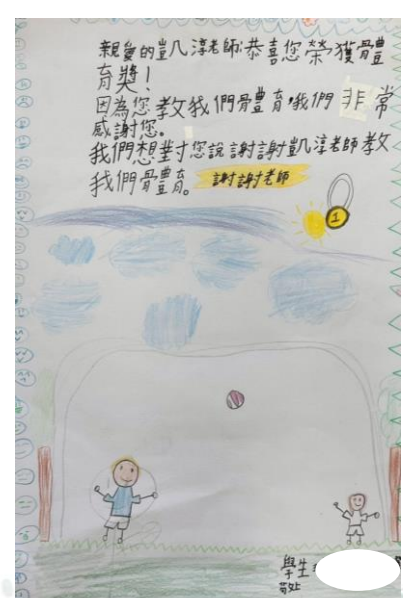 親愛的凱淳老師:恭喜您榮獲體
育獎!
因為您教我們體育,我們非常
感謝您。
我們想對您說謝謝凱淳老師教
我們體育。 謝謝老師
1
學生
敬上